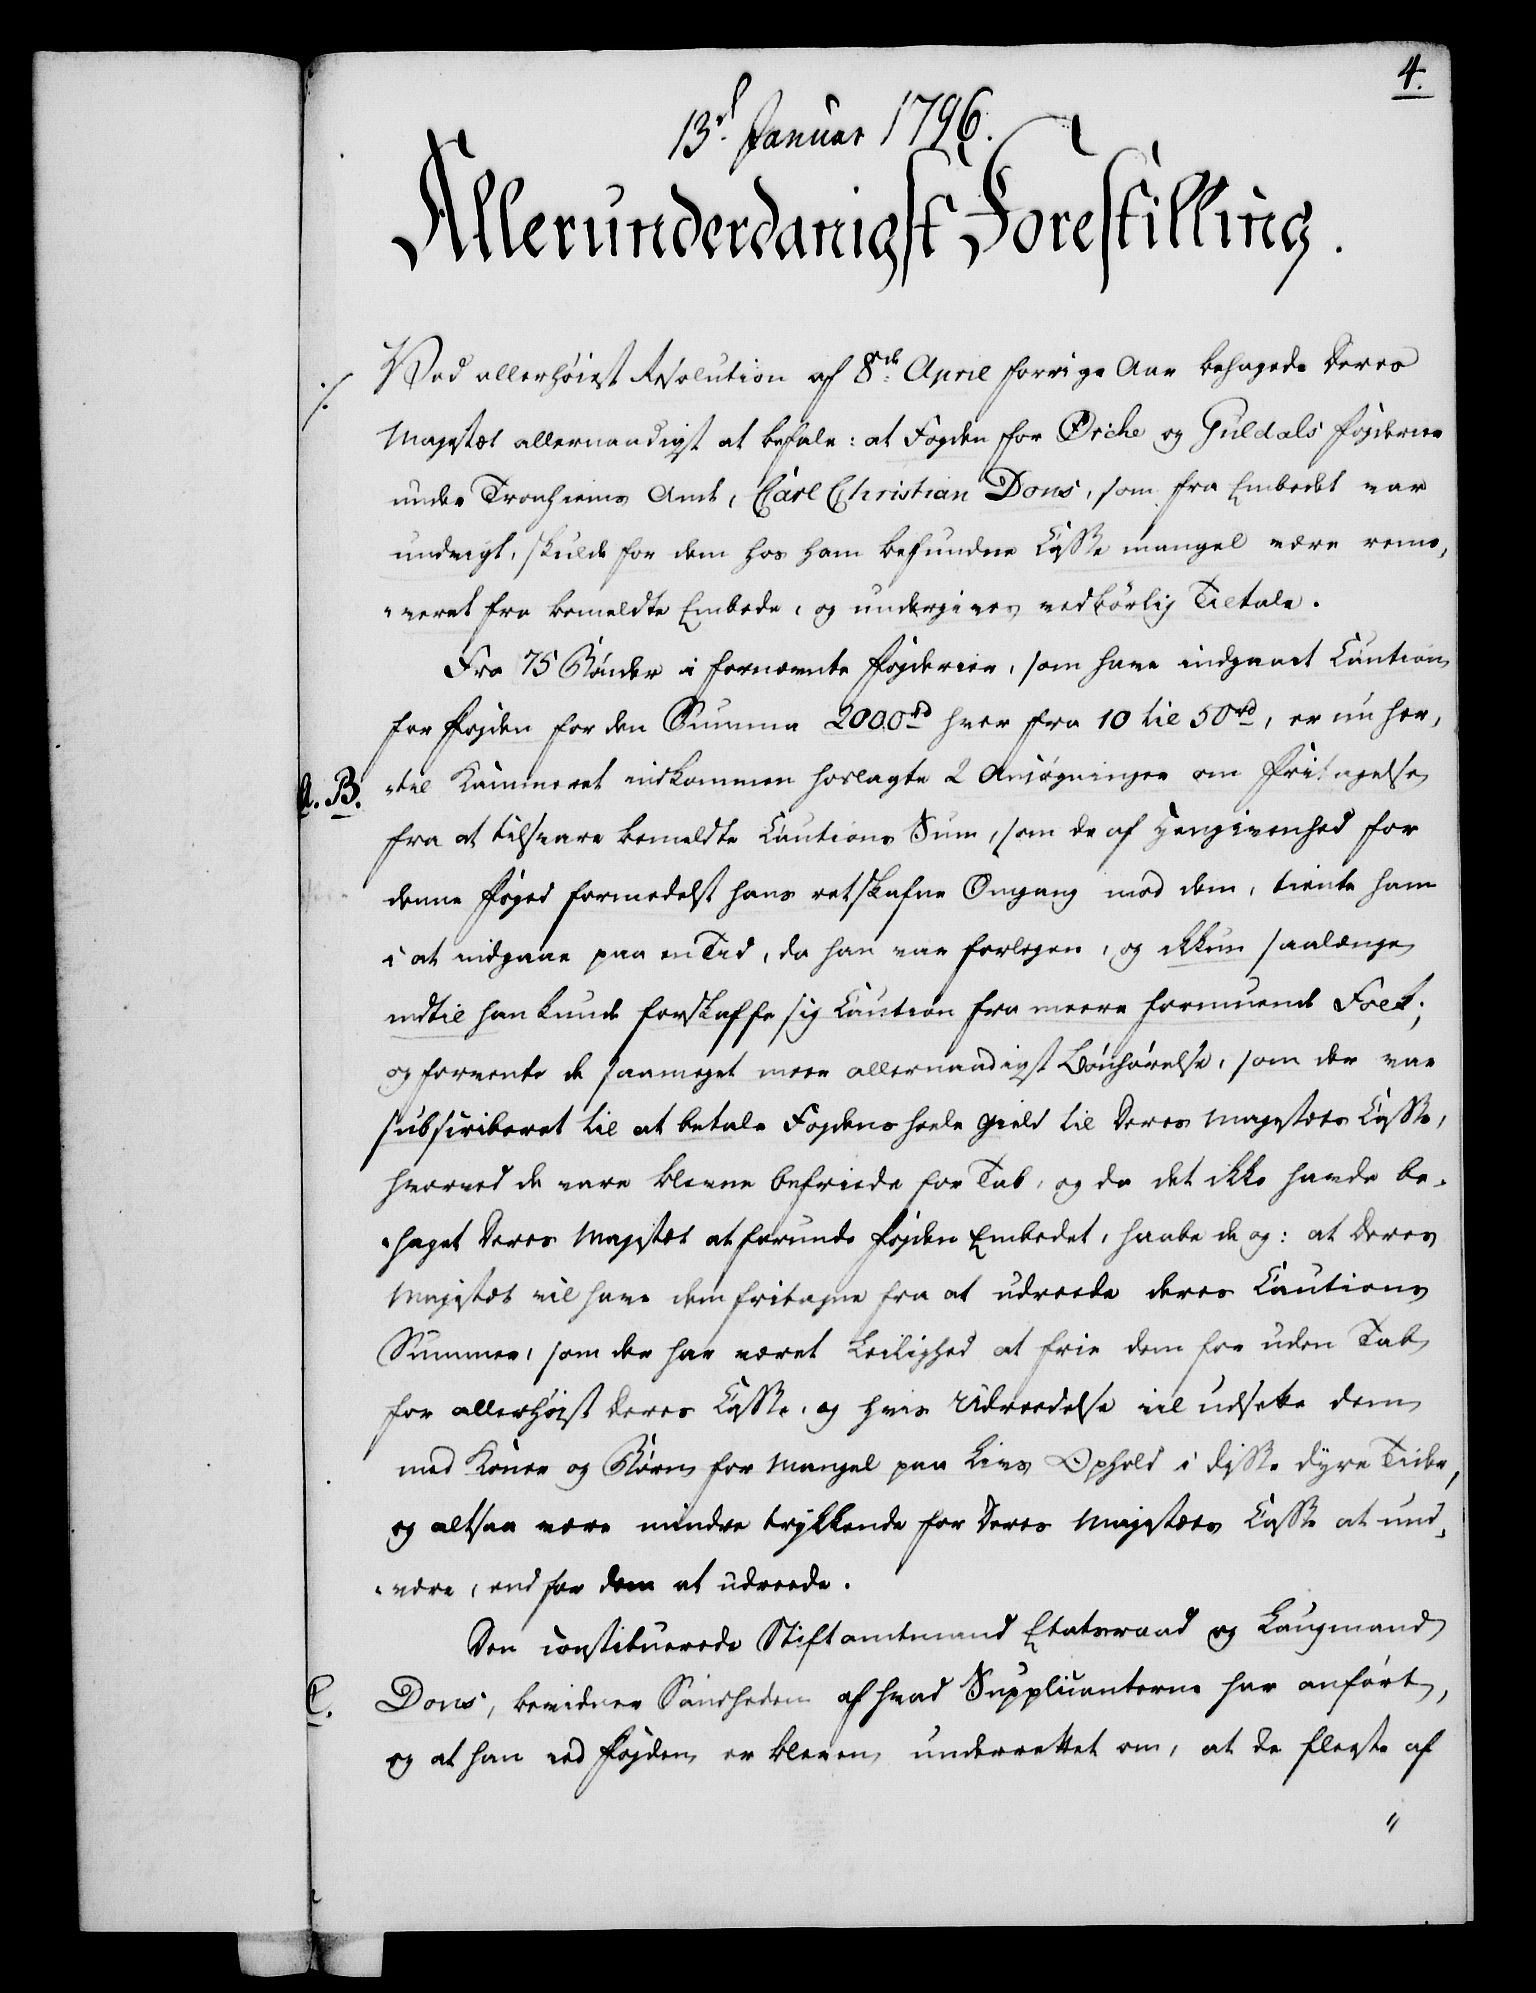 4.
13de Januar 1796.
Allerunderdanigst Forestilling.
./. Ved allerhøiest Resolution af 8de April forrige Aar behagede Deres
Majestæt allernaadigst at befale: at Fogden for Ørche og Guldals Fogderier
under Tronhiems Amt, Carl Christian Dons, som fra Embedet var
undvigt, skulde for dem hos ham befundne Casse mangel være remo,
"veret fra bemeldte Embede, og undergives vedbørlig Tiltale.
Fra 75 Bønder i fornævnte Fogderier, som have indgaaet Caution
for Fogden for den Summa 2000rd hver fra 10 til 50rd, er nu her,
A. B. "til Kammeret indkommen hoslagte 2 Ansøgninger om Fritagelse
fra at tilsvare bemeldte Cautions Sum, som de af Hengivenhed for
denne Foged formedelst hans retskafne Omgang med dem, tiente ham
i at indgaae paa en Tid, da han var forlegen, og ikkun saalænge
indtil han kunde forskaffe sig Caution fra meere formuende Folk;
og forvente de saameget meer allernaadigst Bønhørelse, som der var
subscriberet til at betale Fogdens heele Gield til Deres Majestæts Casse,
hvorved de vare blevne befriede for Tab, og da det ikke havde be,
"haget Deres Majestæt at forunde Fogden Embedet, haabe de og: at Deres
Majestæt vil have dem fritagne fra at udreede deres Cautions
Summer, som der har været Leilighed at frie dem for uden Tab
for allerhøist Deres Casse, og hvis Udreedelse vil udsette dem
med Koner og Børn for Mangel paa Livs Ophold i disse dyre Tider,
og altsaa være mindre trykkende for Deres Majestæts Casse at und,
"være, end for dem at udreede.
Den constituerede Stiftamtmand Etatsraad og Laugmand
C. Dons, bevidner Sandheden af hvad Supplicanterne har anført,
og at han ved Fogden er bleven underrettet om, at de fleeste af
"